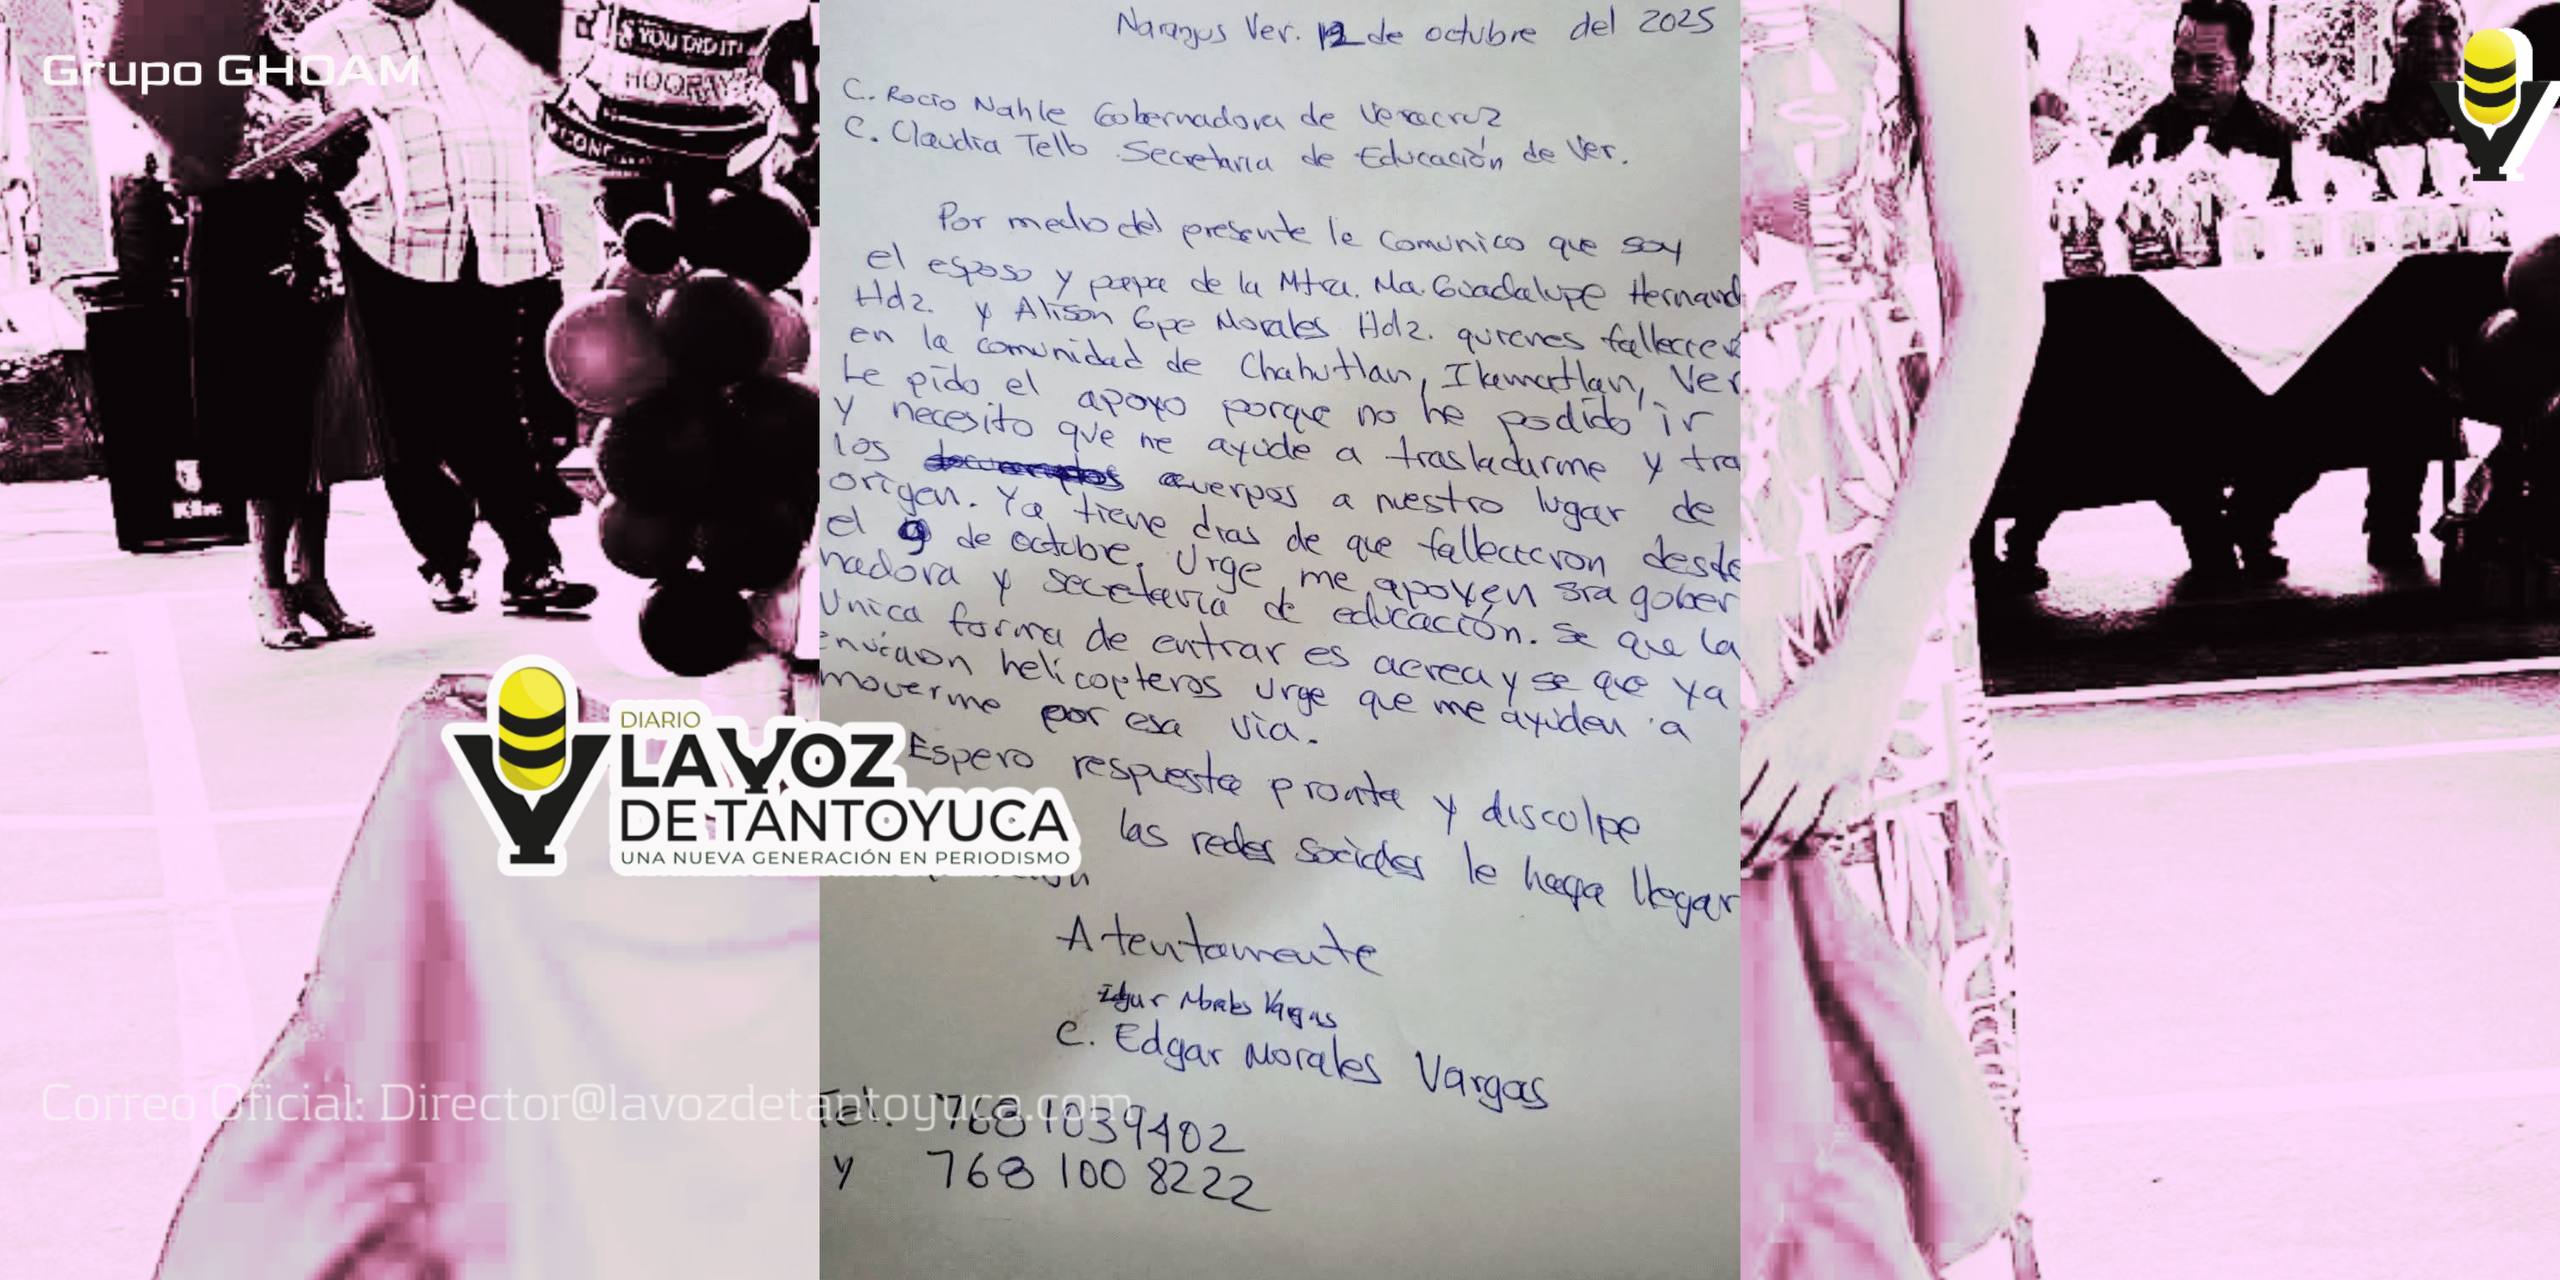 Grupo GHOAM
YOU DID IT!
HOORAY
CONG
Naranjos Ver. 12 de octubre del 2025
C. Rocío Nahle Gobernadora de Veracruz
C. Claudia Tello Secretaria de Educación de Ver.
Por medio del presente le comunico que soy
el esposo y papa de la Mtra. Ma. Guadalupe Hernand
Hdz. y Alison Gpe Morales Hdz. quienes falleciero
en la comunidad de Chahutlan, Ilamatlan, Ver
Le pido el apoyo porque no he podido ir
y necesito que me ayude a trasladarme y tra
los cuerpos a nuestro lugar de
origen. Ya tiene dias de que fallecieron desde
el 9 de octubre. Urge me apoyen sra gober
nadora y secretaria de educación. Se que la
Unica forma de entrar es aerea y se que ya
enviaon helicopteros urge que me ayuden a
moverme por esa vía.
Espero respuesta pronta y disculpe
las redes sociales le haga llegar
Atentamente
Edgar Morales Vargas
C. Edgar Morales Vargas
Tel. 768 1039402
y 768 100 8222
DIARIO
LA VOZ
DE TANTOYUCA
UNA NUEVA GENERACIÓN EN PERIODISMO
Correo Oficial: Director@lavozdetantoyuca.com